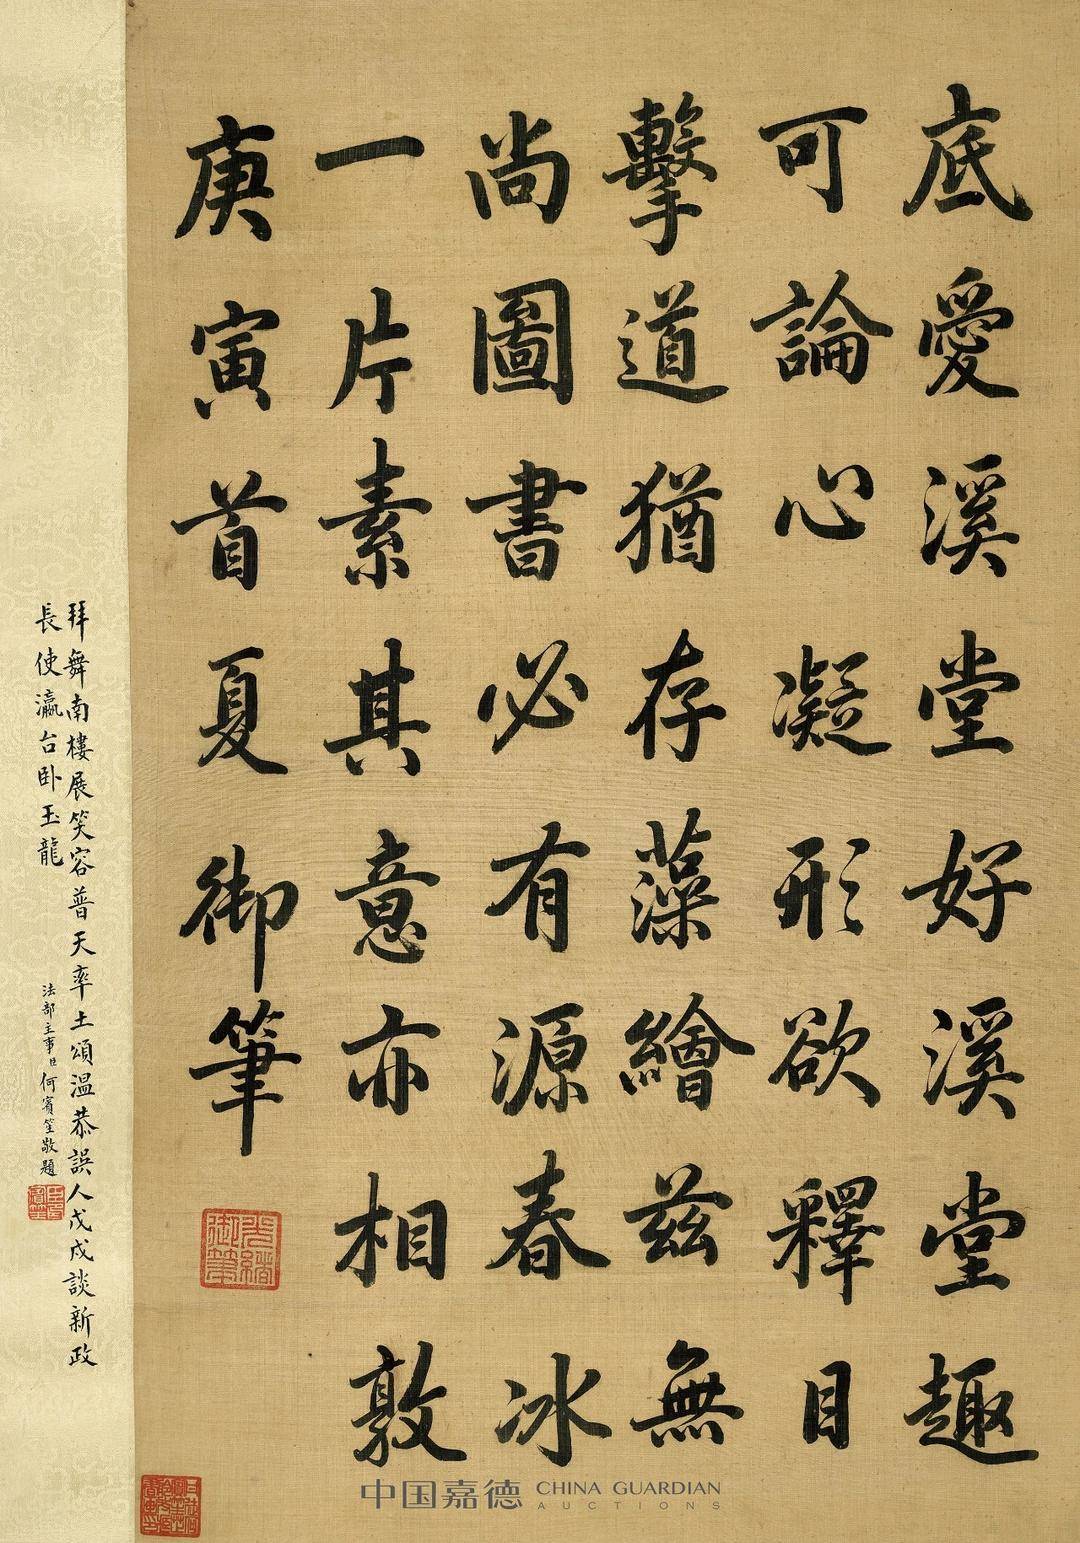 底愛溪堂好溪堂趣
可論心凝形欲釋目
擊道猶存藻繪茲無
尚圖書必有源春冰
一片素其意亦相敦
庚寅首夏御筆
光緒御筆
拜舞南樓展笑容普天率土頌溫恭誤人戊戌談新政
長使瀛台卧玉龍
法部主事臣何賓笙敬題
中国嘉德 CHINA GUARDIAN
AUCTIONS